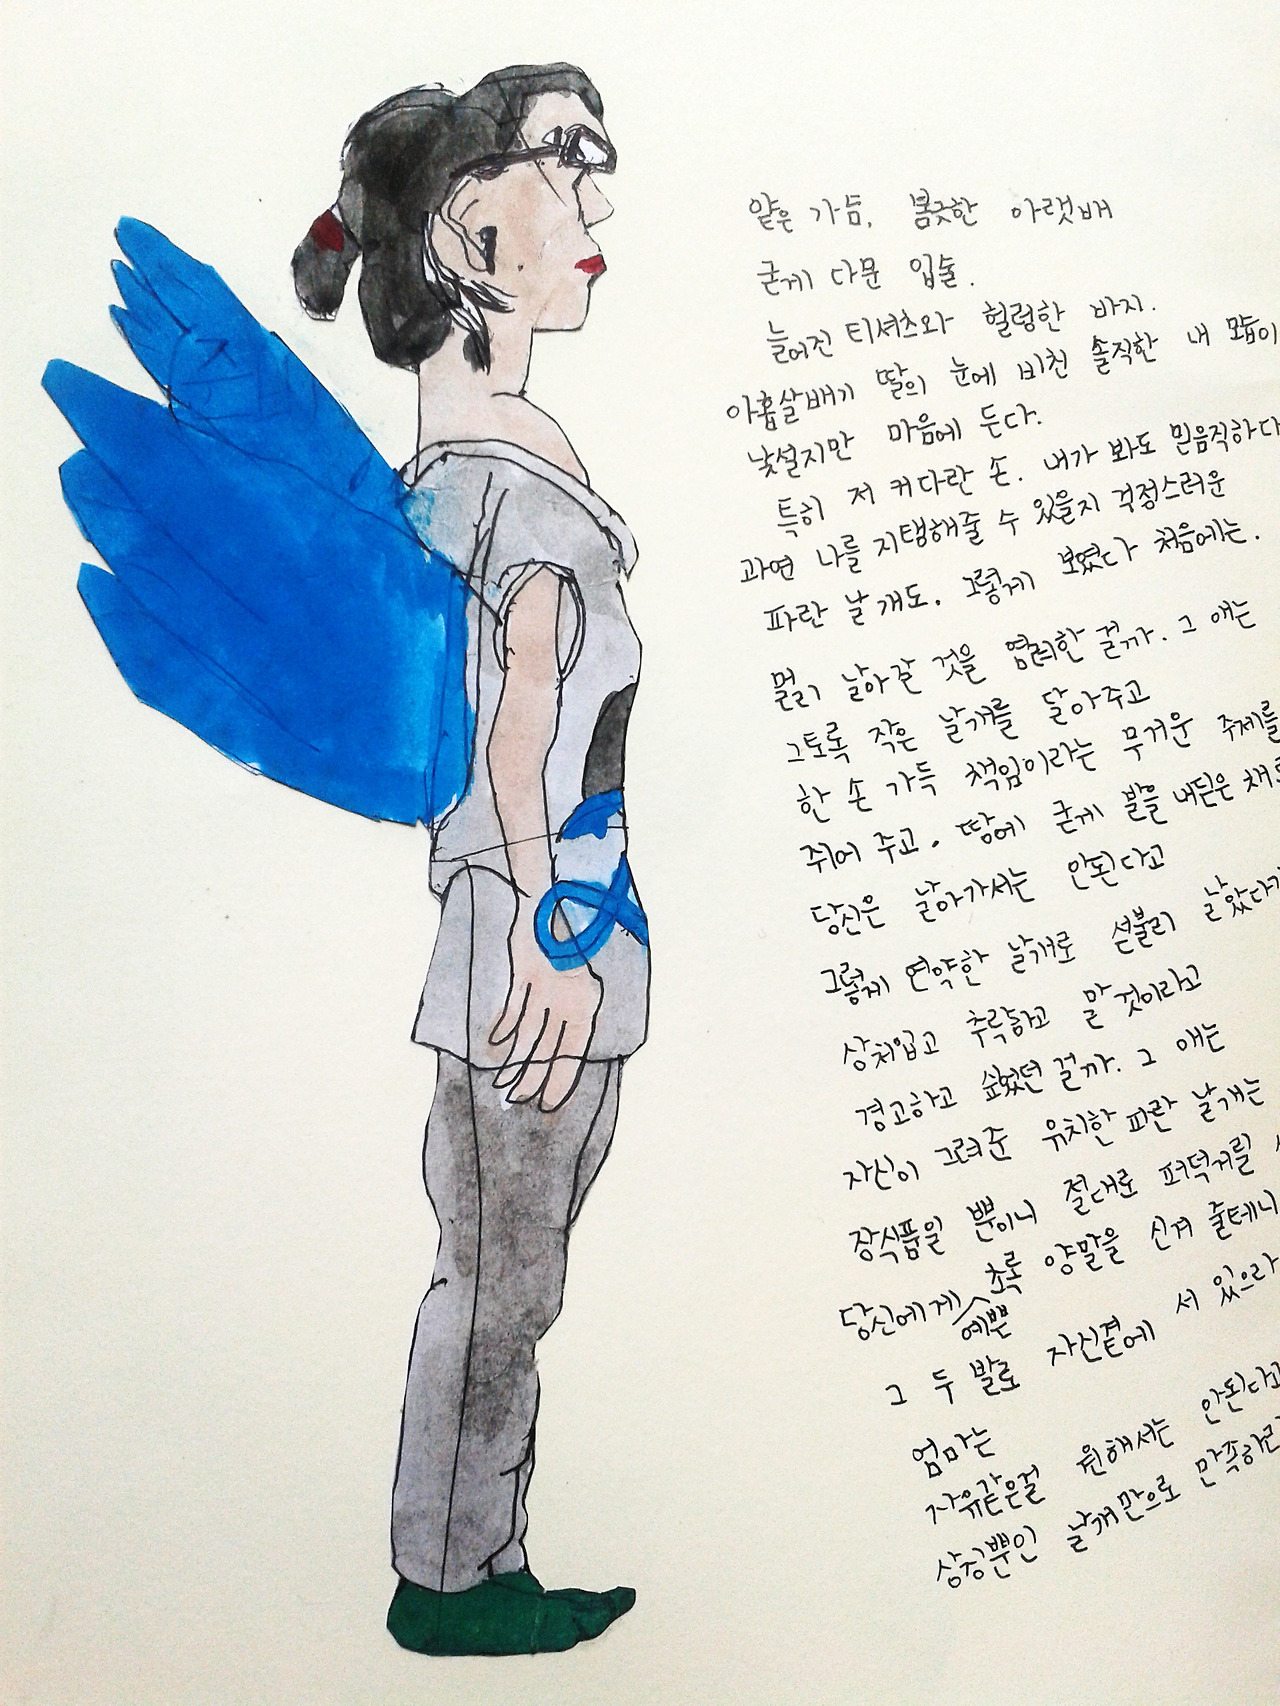 얇은 가슴, 봄긋한 아랫배
굳게 다문 입술.
늘어진 티셔츠와 헐렁한 바지.
아홉살배기 딸의 눈에 비친 솔직한 내 모습이
낯설지만 마음에 든다.
특히 저 커다란 손. 내가 봐도 믿음직하다
과연 나를 지탱해줄 수 있을지 걱정스러운
파란 날개도. 그렇게 보였다 처음에는.
멀리 날아갈 것을 염려한 걸까. 그 애는
그토록 작은 날개를 달아주고
한 손 가득 책임이라는 무거운 주제를
쥐어 주고. 땅에 굳게 발을 내딛은 채로
당신은 날아가서는 안된다고
그렇게 연약한 날개로 섣불리 날았다가
상처입고 추락하고 말 것이라고
경고하고 싶었던 걸까. 그 애는
자신이 그려준 유치한 파란 날개는
장식품일 뿐이니 절대로 퍼덕거릴
당신에게 예쁜 초록 양말을 신겨 줄테니
그 두 발로 자신곁에 서 있으라
엄마는
자유같은걸 원해서는 안된다고
상징뿐인 날개만으로 만족하라